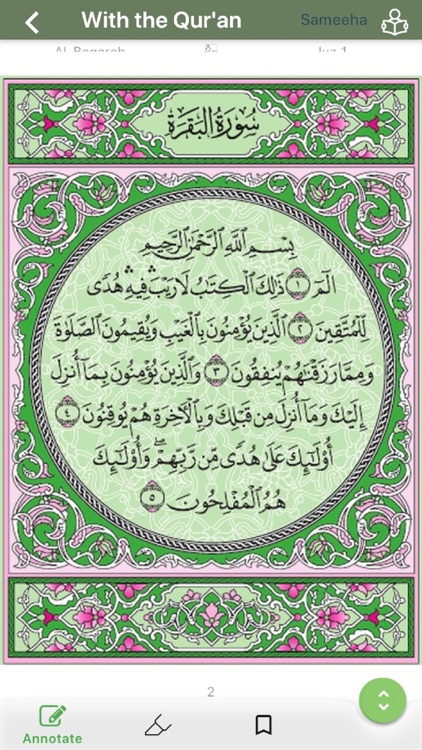 With the Qur'an
Sameeha
Al-Baqarah
Juz 1
سُورَةُ البَقَرَةِ
بِسْمِ ٱللَّهِ ٱلرَّحْمَٰنِ ٱلرَّحِيمِ
الٓمٓ ١ ذَٰلِكَ ٱلْكِتَٰبُ لَا رَيْبَ ۛ فِيهِ ۛ هُدًى
لِّلْمُتَّقِينَ ٢ ٱلَّذِينَ يُؤْمِنُونَ بِٱلْغَيْبِ وَيُقِيمُونَ ٱلصَّلَوٰةَ
وَمِمَّا رَزَقْنَٰهُمْ يُنفِقُونَ ٣ وَٱلَّذِينَ يُؤْمِنُونَ بِمَآ أُنزِلَ
إِلَيْكَ وَمَآ أُنزِلَ مِن قَبْلِكَ وَبِٱلْءَاخِرَةِ هُمْ يُوقِنُونَ ٤
أُو۟لَٰٓئِكَ عَلَىٰ هُدًى مِّن رَّبِّهِمْ ۖ وَأُو۟لَٰٓئِكَ
هُمُ ٱلْمُفْلِحُونَ ٥
2
Annotate